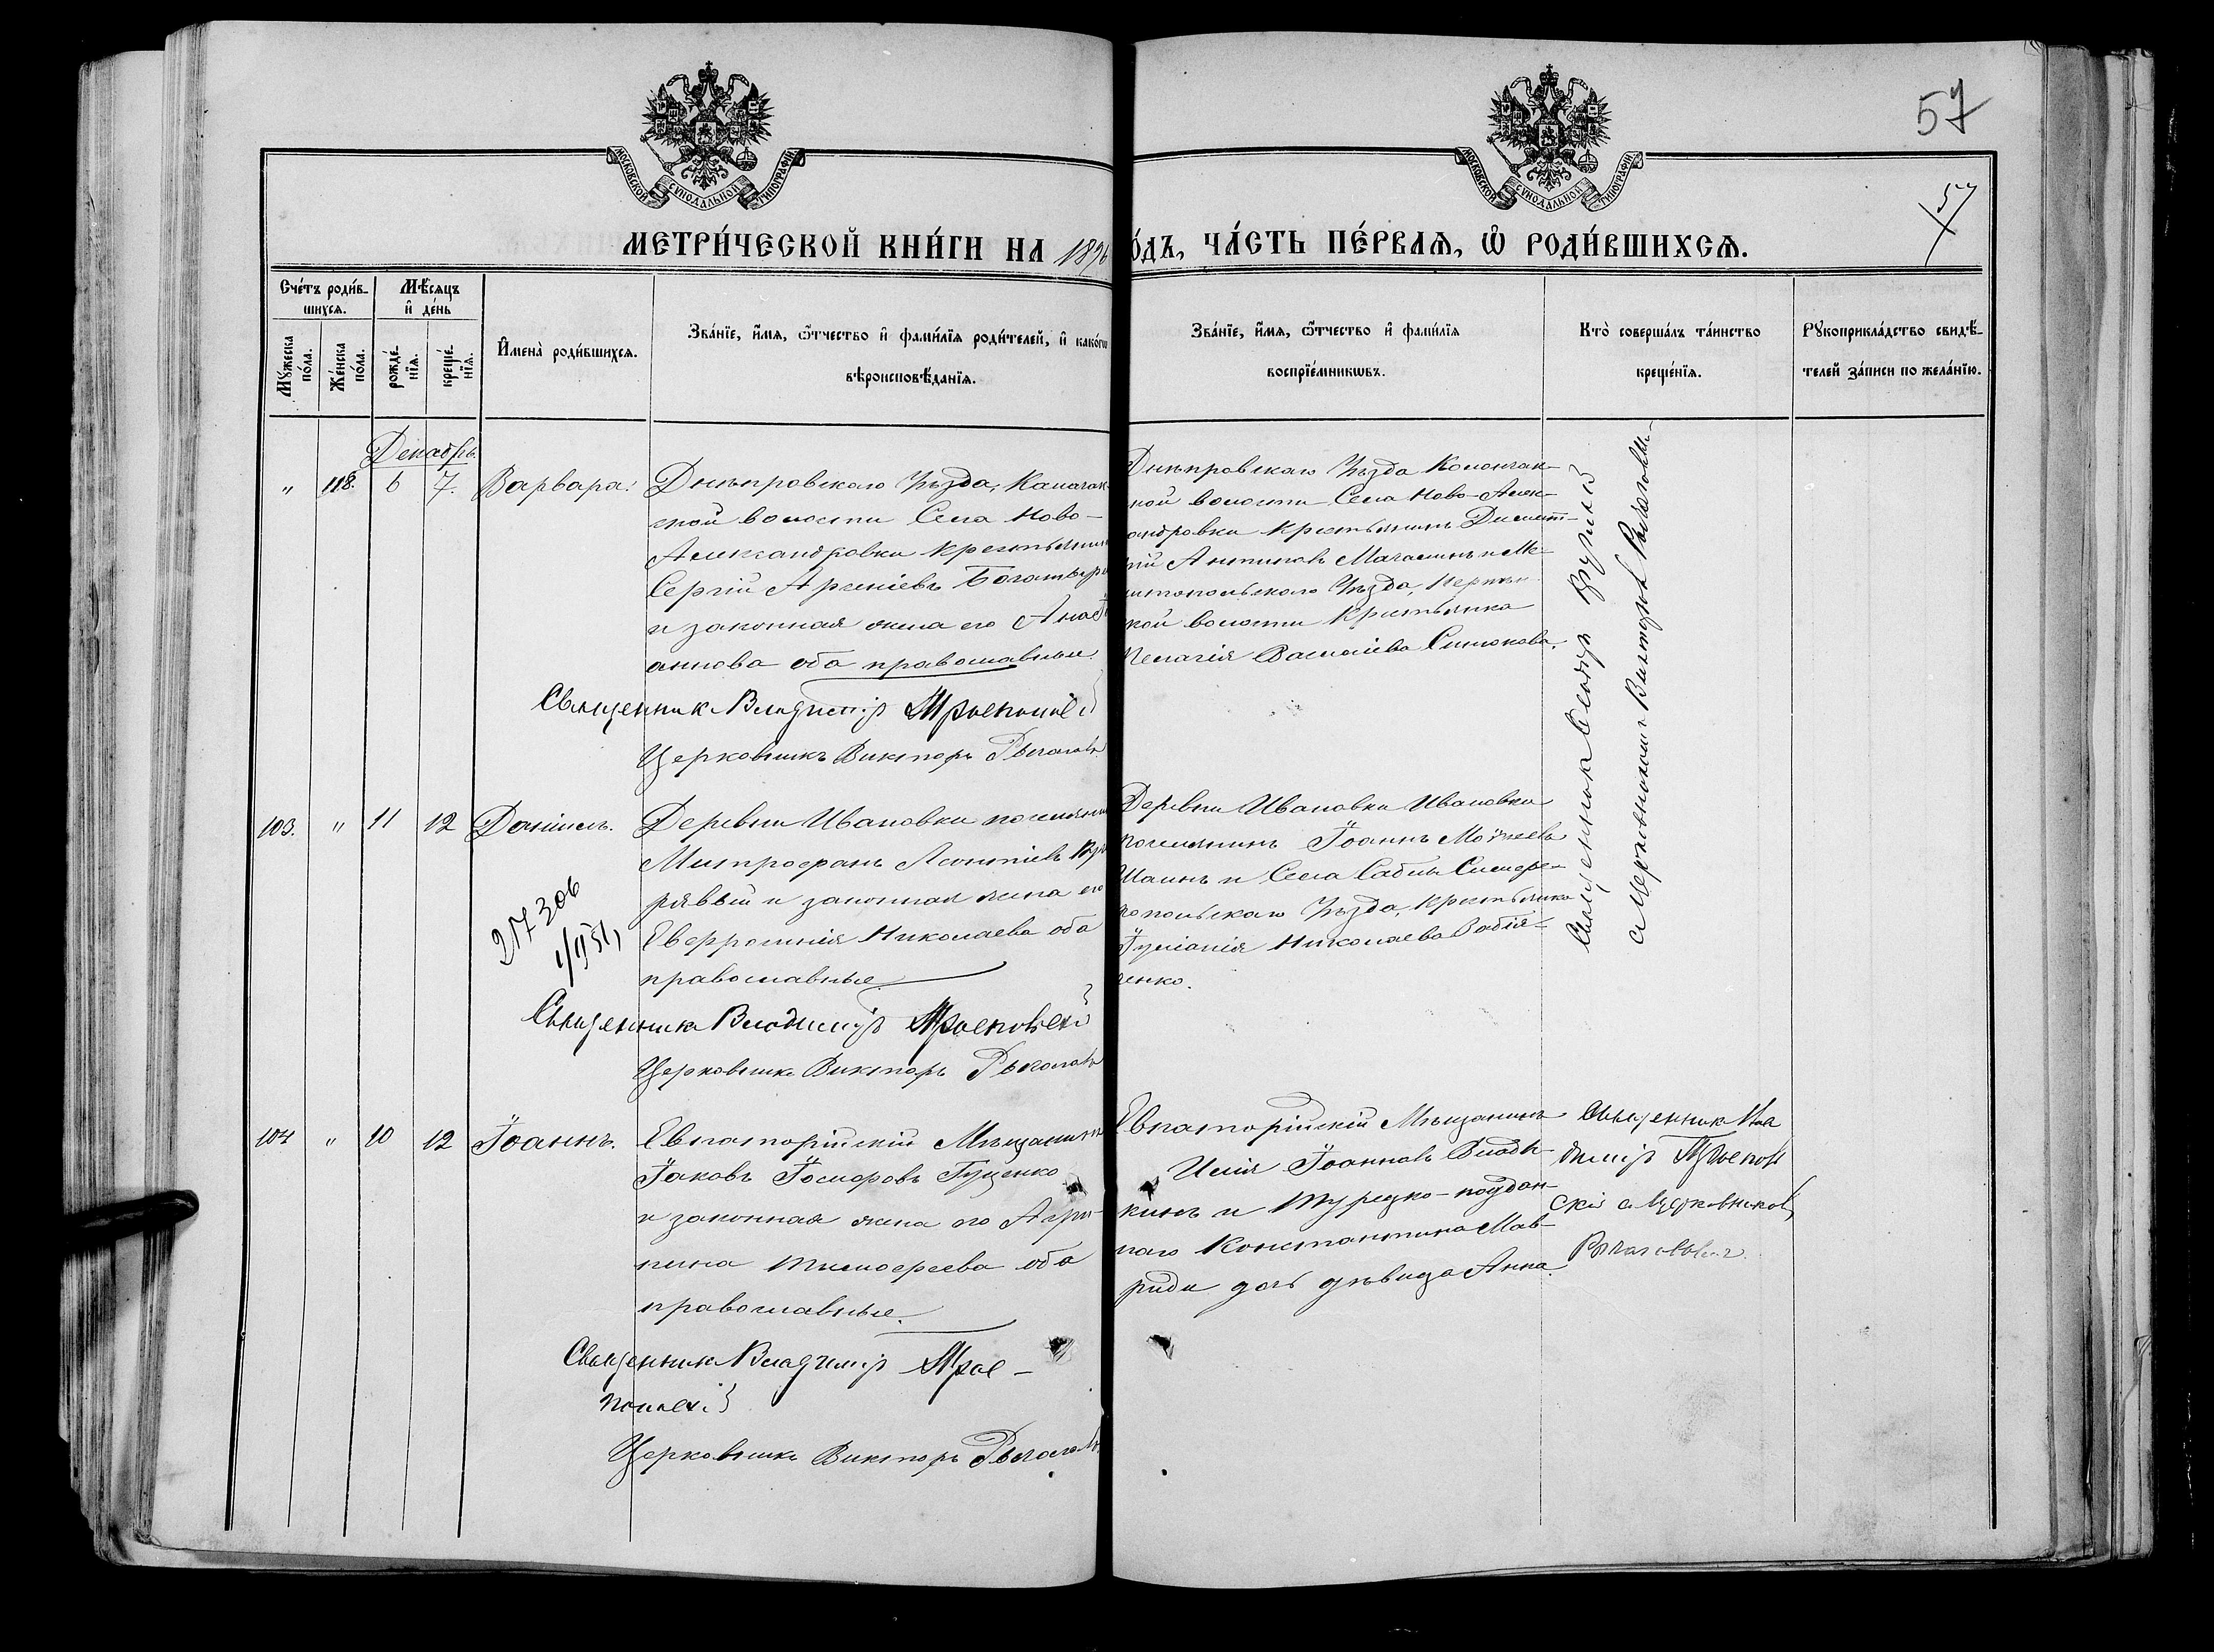 57
57
МОСКОВСКОЙ СУНОДАЛЬНОЙ ТИПОГРАФІИ
МОСКОВСКОЙ СУНОДАЛЬНОЙ ТИПОГРАФІИ
МЕТРИ́ЧЕСКОЙ КНИ́ГИ НА 1896
О́ДЪ, ЧА́СТЬ ПЕ́РВАѦ, Ѽ РОДИ́ВШИХСѦ.
Сче́тъ роди́в-
шихсѧ.
Мꙋ́жеска по́ла.
Же́нска по́ла.
Мѣ́сѧцъ
и҆ де́нь
рожде́-
нїѧ.
креще́-
нїѧ.
И҆мена̀ роди́вшихсѧ.
Зва́нїе, и҆́мѧ, ѻ҆́тчество и҆ фами́лїѧ роди́телей, и҆ како́гѡ
вѣроисповѣ́данїѧ.
Зва́нїе, и҆́мѧ, ѻ҆́тчество и҆ фами́лїѧ
воспрїе́мникѡвъ.
Кто̀ соверша́лъ та́инство
креще́нїѧ.
Рꙋкоприкла́дство свидѣ́-
телей за́писи по жела́нїю.
Декабрь.
" 118. 6 7. Варвара.
Днѣпровскаго Уѣзда, Каланчак-
ской волости Села Ново-
Александровки крестьянин
Сергій Арсеніевъ Богатыр
и законная жена его Анаст
 оба православные.
Священникъ Владиміръ
Церковникъ Викторъ Рычаговъ
Днѣпровскаго Уѣзда Каланчак-
ской волости Села Ново-Алек-
андровки крестьянинъ Димит-
рій Антиповъ и Ме-
итопольскаго Уѣзда,
кой волости Крестьянка
Пелагія Василіева Синюкова.
Священникъ
съ Церковникомъ Викторомъ Рычаговымъ
103. " 11 12 Даніилъ.
Деревни Ивановки поселянин
Митрофанъ Леонтіевъ Куч
рявый и законная жена его
Евфросинія Николаева оба
православные.
217306
Священникъ Владиміръ
Церковникъ Викторъ Рычаговъ
Деревни Ивановки Ивановки
поселянинъ Іоаннъ Моѵсеевъ
Шаинъ и Села Саблы Симфе-
ропольскаго Уѣзда, Крестьянка
Іуліанія Николаева Бабія-
ченко.
104 " 10 12 Іоаннъ.
Евпаторійскій Мѣщанинъ
Іаковъ Іосифовъ Гуценко
и законная жена его Агрип-
пина Тимофеева оба
православные.
Священникъ Владиміръ
Церковникъ Викторъ Рычаговъ
Евпаторійскій Мѣщанинъ
Илія Іоанновъ Влады-
кинъ и Турецко-поддан-
наго Константина Мав-
риди дочь дѣвица Анна.
Священникъ Вла
диміръ
скій съ Церковникомъ
Рычаговымъ